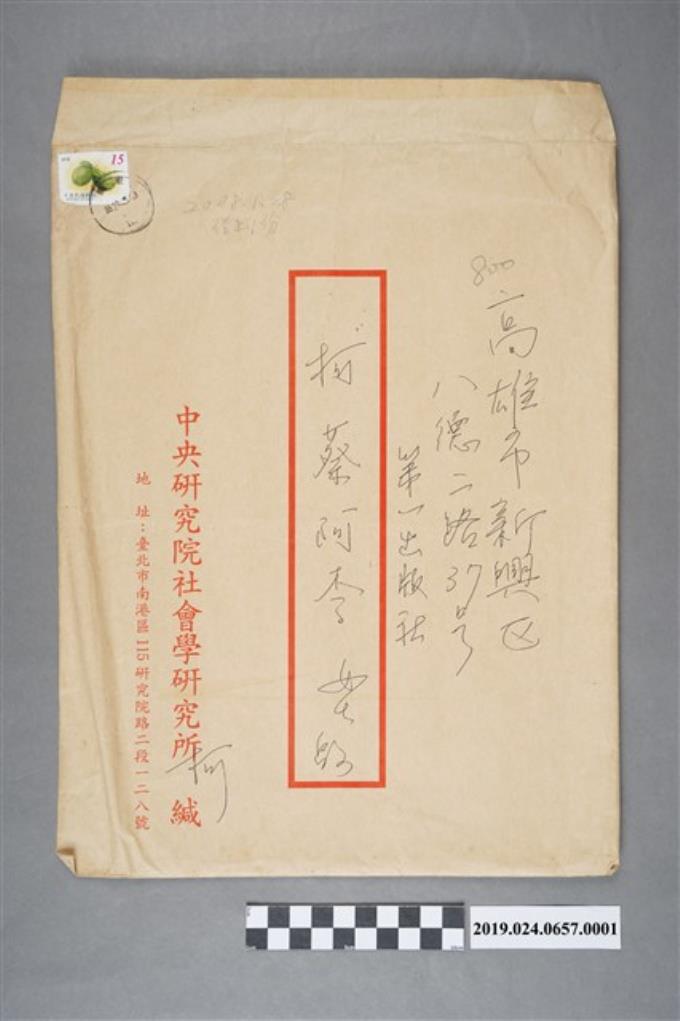 15
800
高雄市新興区
八德二路37号
第一出版社
柯蔡阿李 女士 啟
中央研究院社會學研究所 柯 緘
地 址：臺北市南港區115研究院路二段一二八號
2019.024.0657.0001